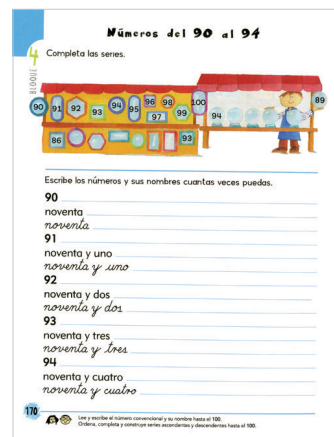 Números del 90 al 94
4
BLOQUE
Completa las series.
90 91 92 93 94 95 96 97 98 99 100
94 89
86 93
Escribe los números y sus nombres cuantas veces puedas.
90
noventa
noventa
91
noventa y uno
noventa y uno
92
noventa y dos
noventa y dos
93
noventa y tres
noventa y tres
94
noventa y cuatro
noventa y cuatro
170
Lee y escribe el número convencional y su nombre hasta el 100.
Ordena, completa y construye series ascendentes y descendentes hasta el 100.